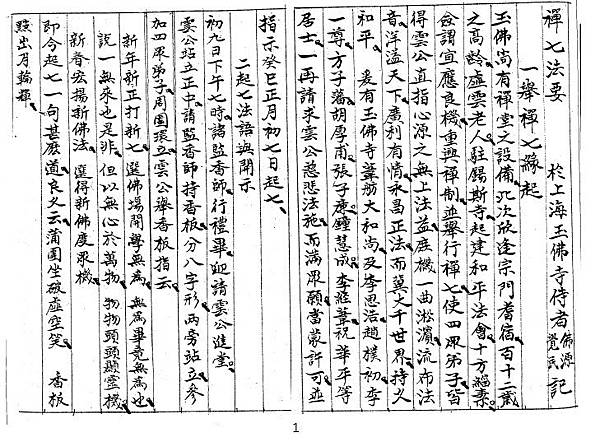 禪七法要 於上海玉佛寺侍者佛源覺民記
一舉禪七緣起
玉佛尚有禪堂之設備，此次欣逢宗門耆宿百十二歲
之高齡虛雲老人，駐錫斯寺起建和平法會，十方緇素，
僉謂宜應良機，重興禪制，並舉行禪七，使四眾弟子皆
得雲公直指心源之無上法益，庶機一曲淞濱，流布法
音，洋溢天下，廣利有情，永昌正法，而冀大千世界，持久
和平。 爰有玉佛寺葦舫大和尚，及李思浩，趙樸初，李
一尊，方子藩，胡厚甫，張子廉，鍾慧成，李經葦，祝華平等
居士，一再請求雲公慈悲法施，而滿眾願，當蒙許可，並
指示癸巳正月初七日起七、
二起七法語與開示
初九日下午七時，諸監香師行禮畢，迎請雲公進堂。
雲公站立正中，請監香師持香板，分八字形，兩旁站立，參
加四眾弟子，周圍環立，雲公舉香板指云，
新年新正打新七 選佛場開學無為，無為畢竟無為也
說一無來也是非。但以無心於萬物 物物頭頭顯靈機。
新春宏揚新佛法。 選得新佛度眾機，
即今起七一句甚麼道，良久云，蒲團坐破虛空笑。 香板
點出月輪輝，
1